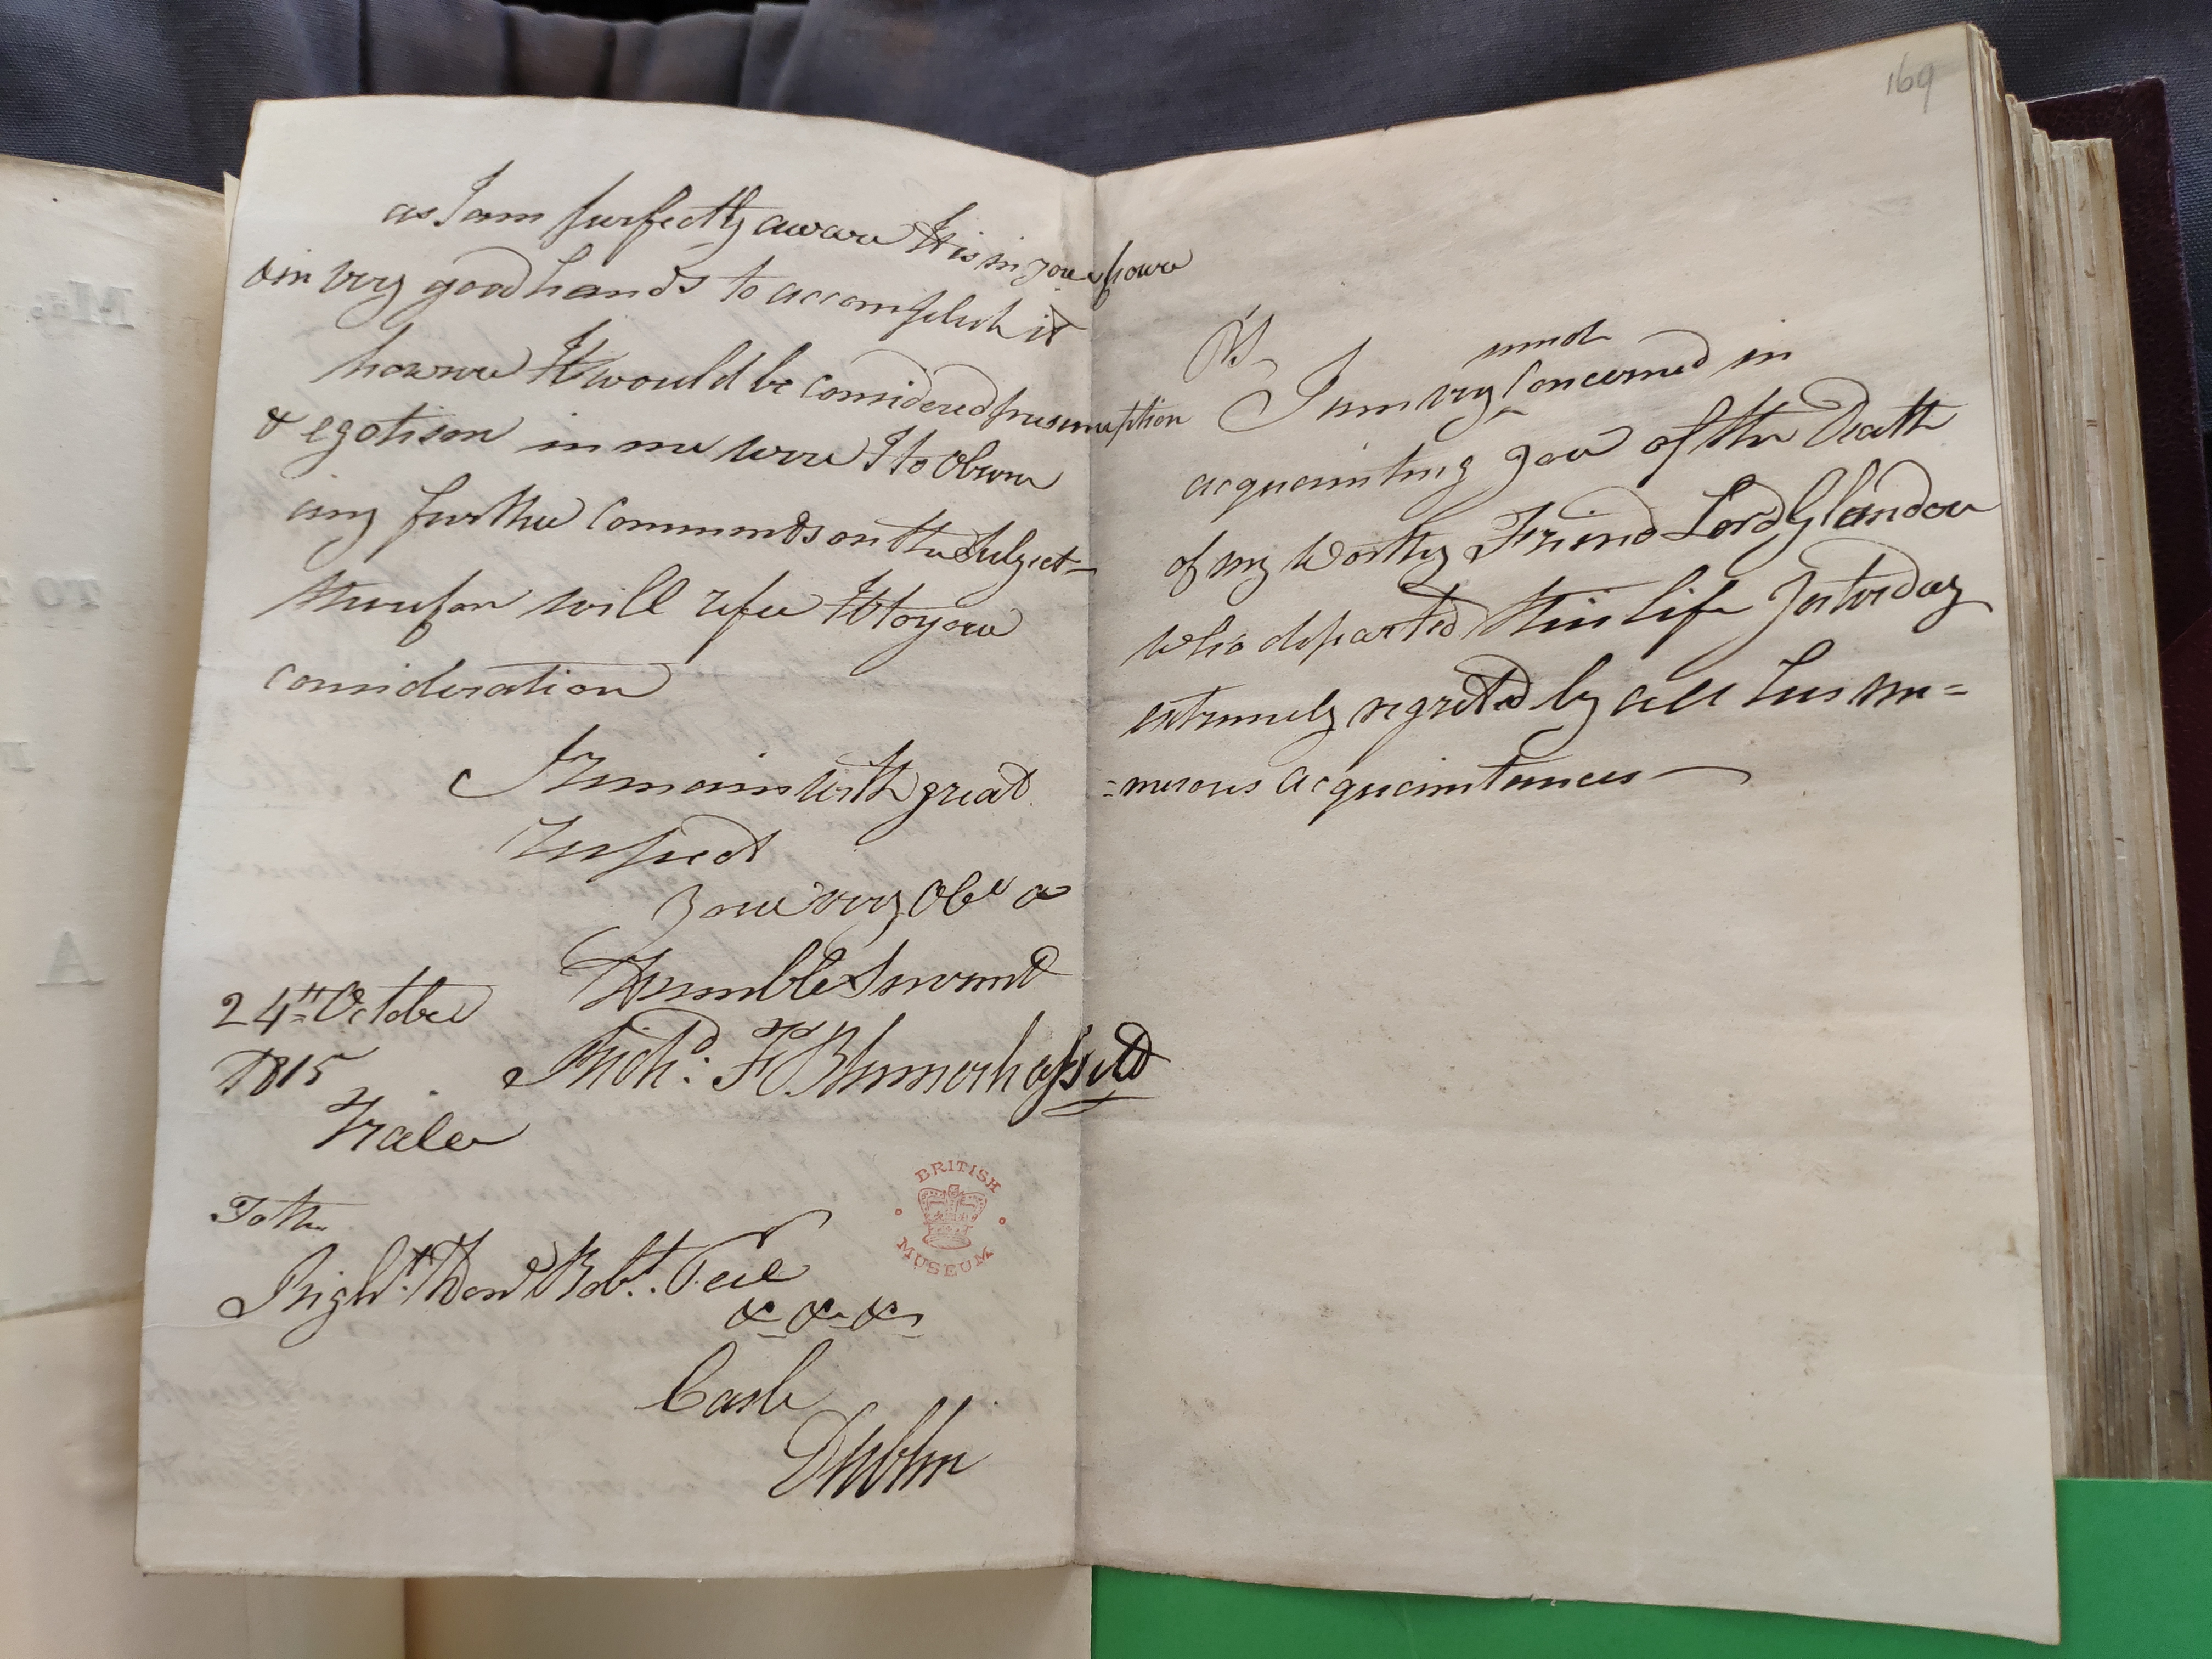 as I am perfectly aware It is in your power
& in very good hands to accomplish it
however It would be considered presumption
& egotism in me were I to Obtrude
any further Comments on the Subject —
therefore will refer It to your
consideration
I remain with great
respect
Your very Obt &
Humble Servant
24th October
1815
Richd. F. Blennerhassett
Tralee
To the
Right. Honl Robt. Peel
&c &c &c
Castle
Dublin
BRITISH
MUSEUM
169
PS
much
I am very ^ Concerned in
acquainting you of the Death
of my Worthy Friend Lord Glandore
who departed this life Yesterday
extremely regreted by all his nu=
=merous acquaintances —